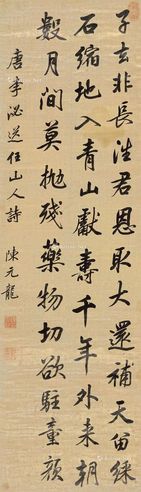 子去非長往君恩取大還補天留鍊
石縮地入青山獻壽千年外来朝
數月間莫抛殘藥物切欲駐童顏
唐李泌送任山人詩 陳元龍